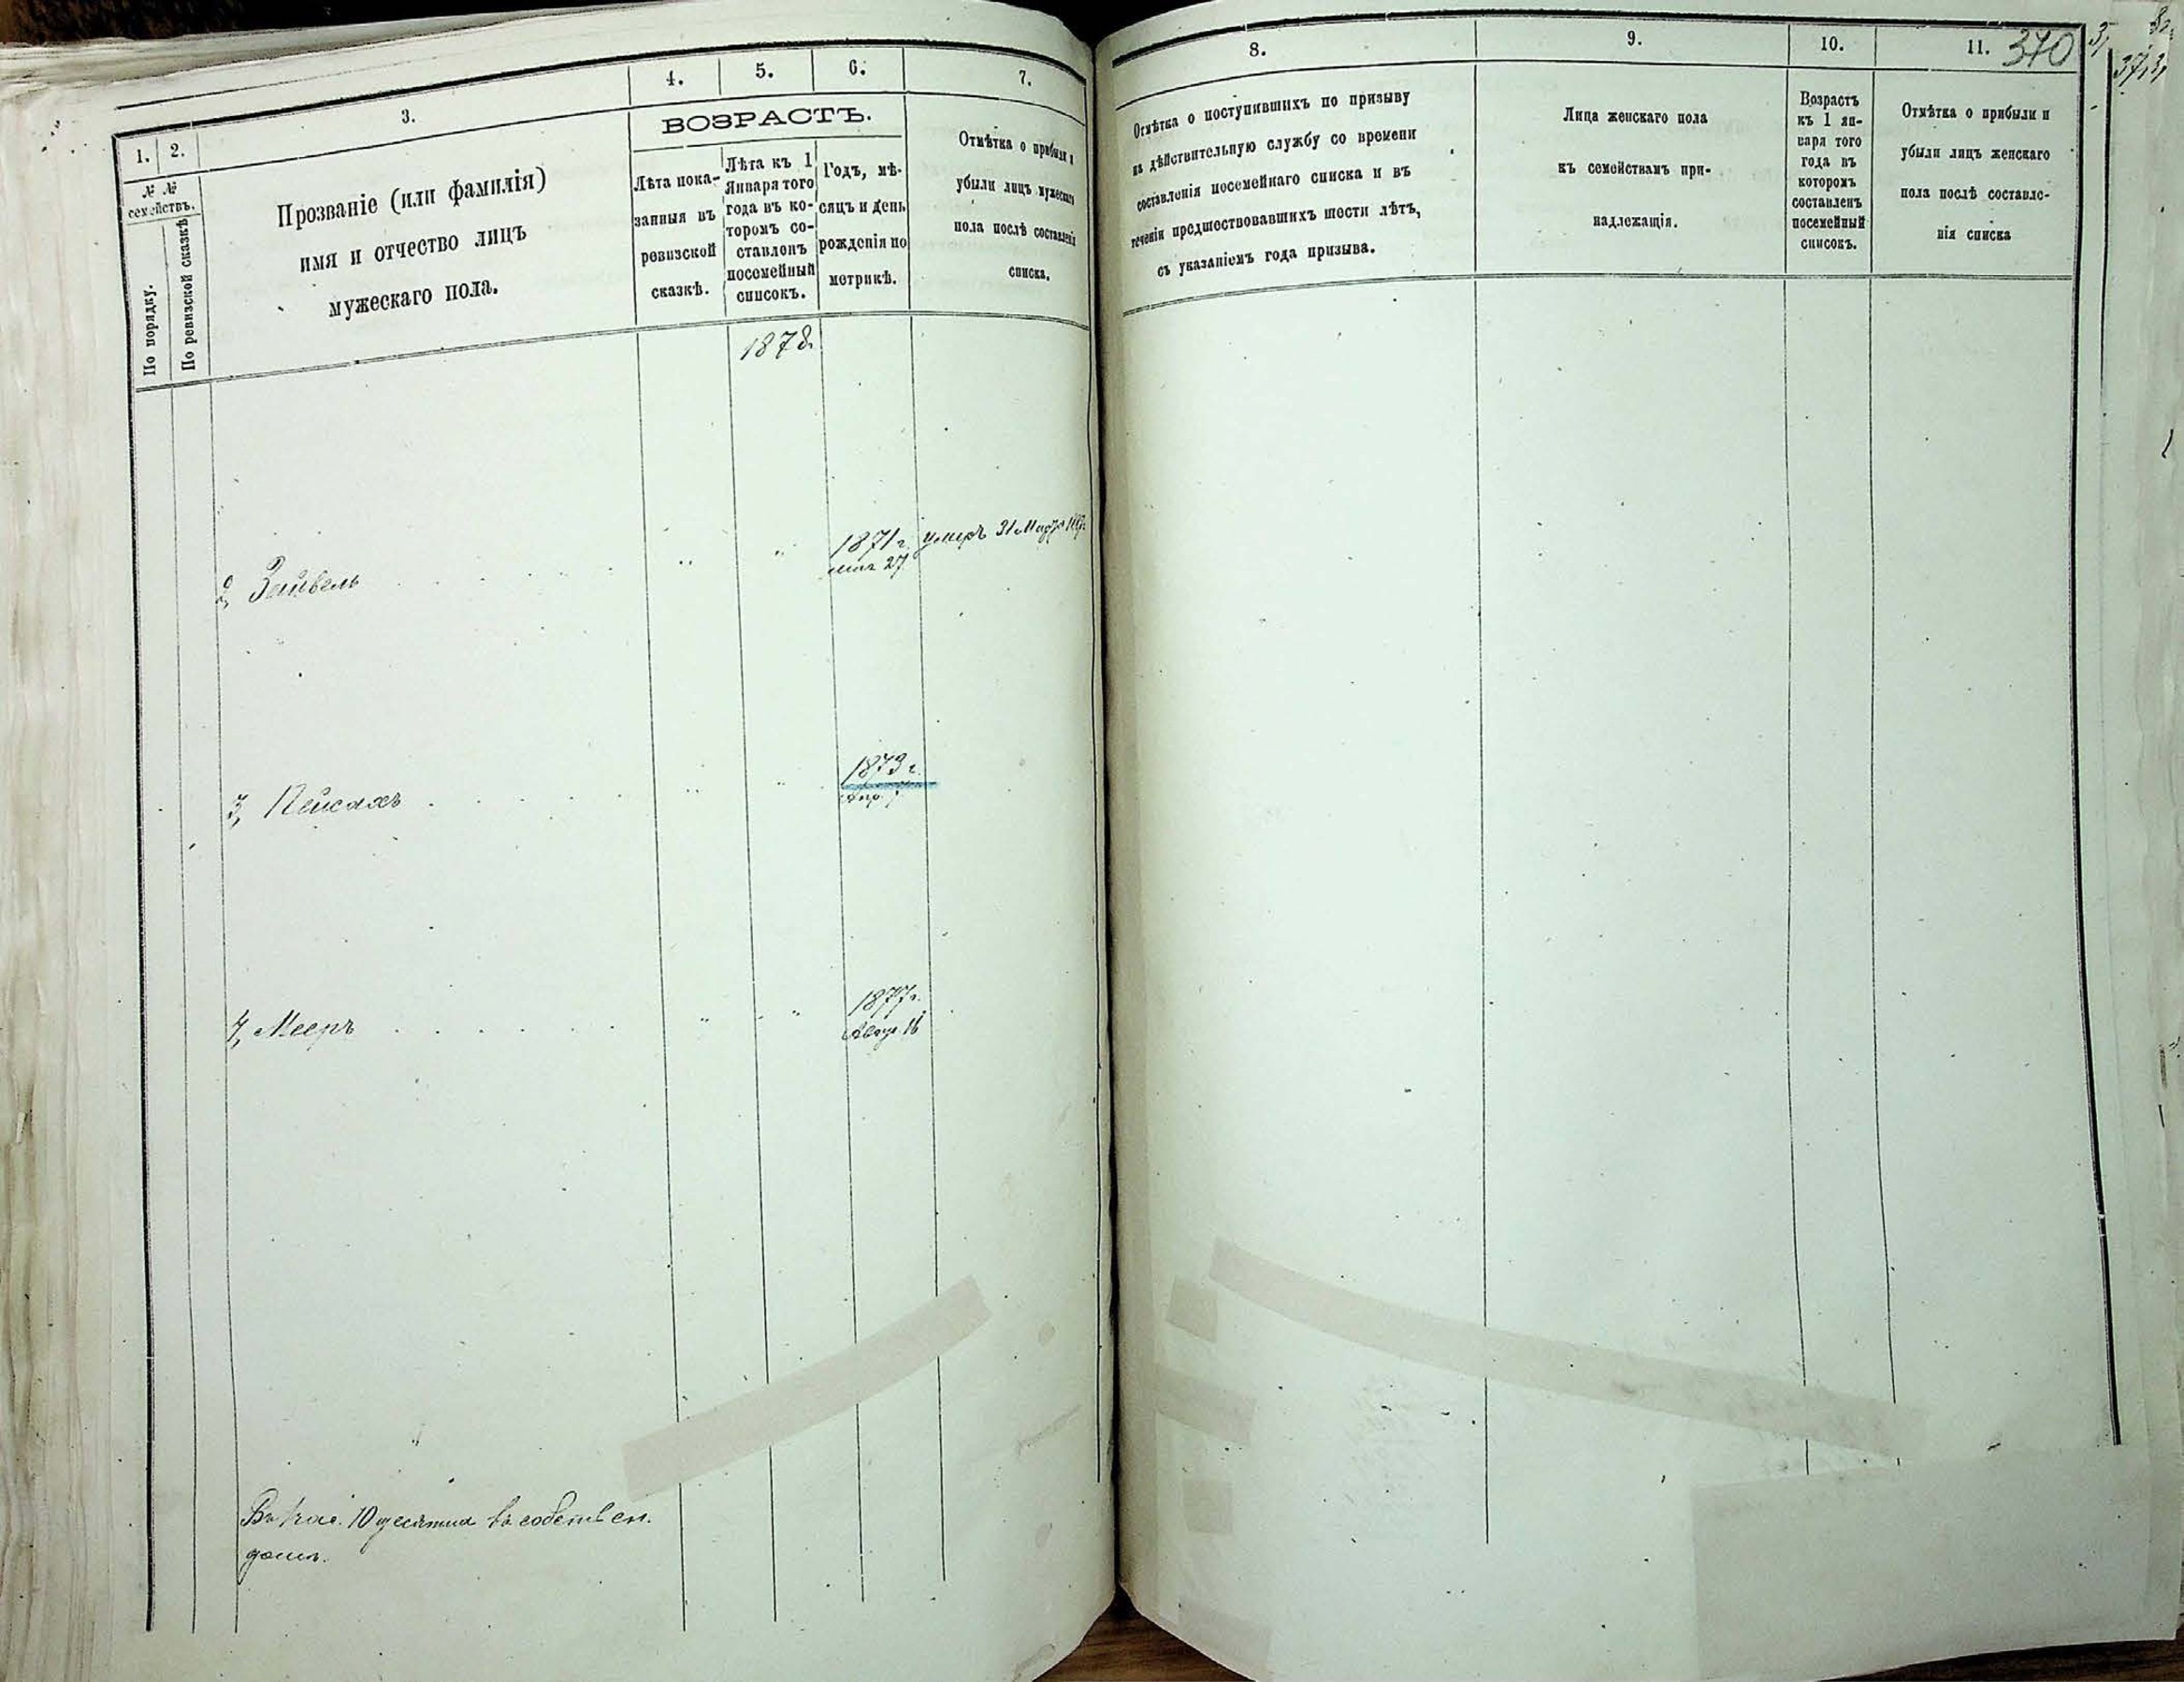 1.
2.
3.
4.
5.
6.
7.
№ №
семействъ.
По порядку.
По ревизской сказкѣ
Прозваніе (или фамилія)
имя и отчество лицъ
мужескаго пола.
ВОЗРАСТЪ.
Лѣта пока-
занныя въ
ревизской
сказкѣ.
Лѣта къ 1
Января того
года въ ко-
торомъ со-
ставленъ
посемейный
списокъ.
Годъ, мѣ-
сяцъ и день
рожденія по
метрикѣ.
Отмѣтка о прибыли и
убыли лицъ мужескаго
пола послѣ составленія
списка.
1878
2, Зайвель
1871 г.
27
умеръ 31 Марта
3, Пейсахъ
1873 г.
Апр. 7
4, Мееръ
1877 г.
Авгус 16
10 десятина въ собствен.
домѣ.
8.
9.
10.
11.
370
Отмѣтка о поступившихъ по призыву
на дѣйствительную службу со времени
составленія посемейнаго списка и въ
теченіи предшествовавшихъ шести лѣтъ,
съ указаніемъ года призыва.
Лица женскаго пола
къ семействамъ при-
надлежащія.
Возрастъ
къ 1 ян-
варя того
года въ
которомъ
составленъ
посемейный
списокъ.
Отмѣтка о прибыли и
убыли лицъ женскаго
пола послѣ составле-
нія списка